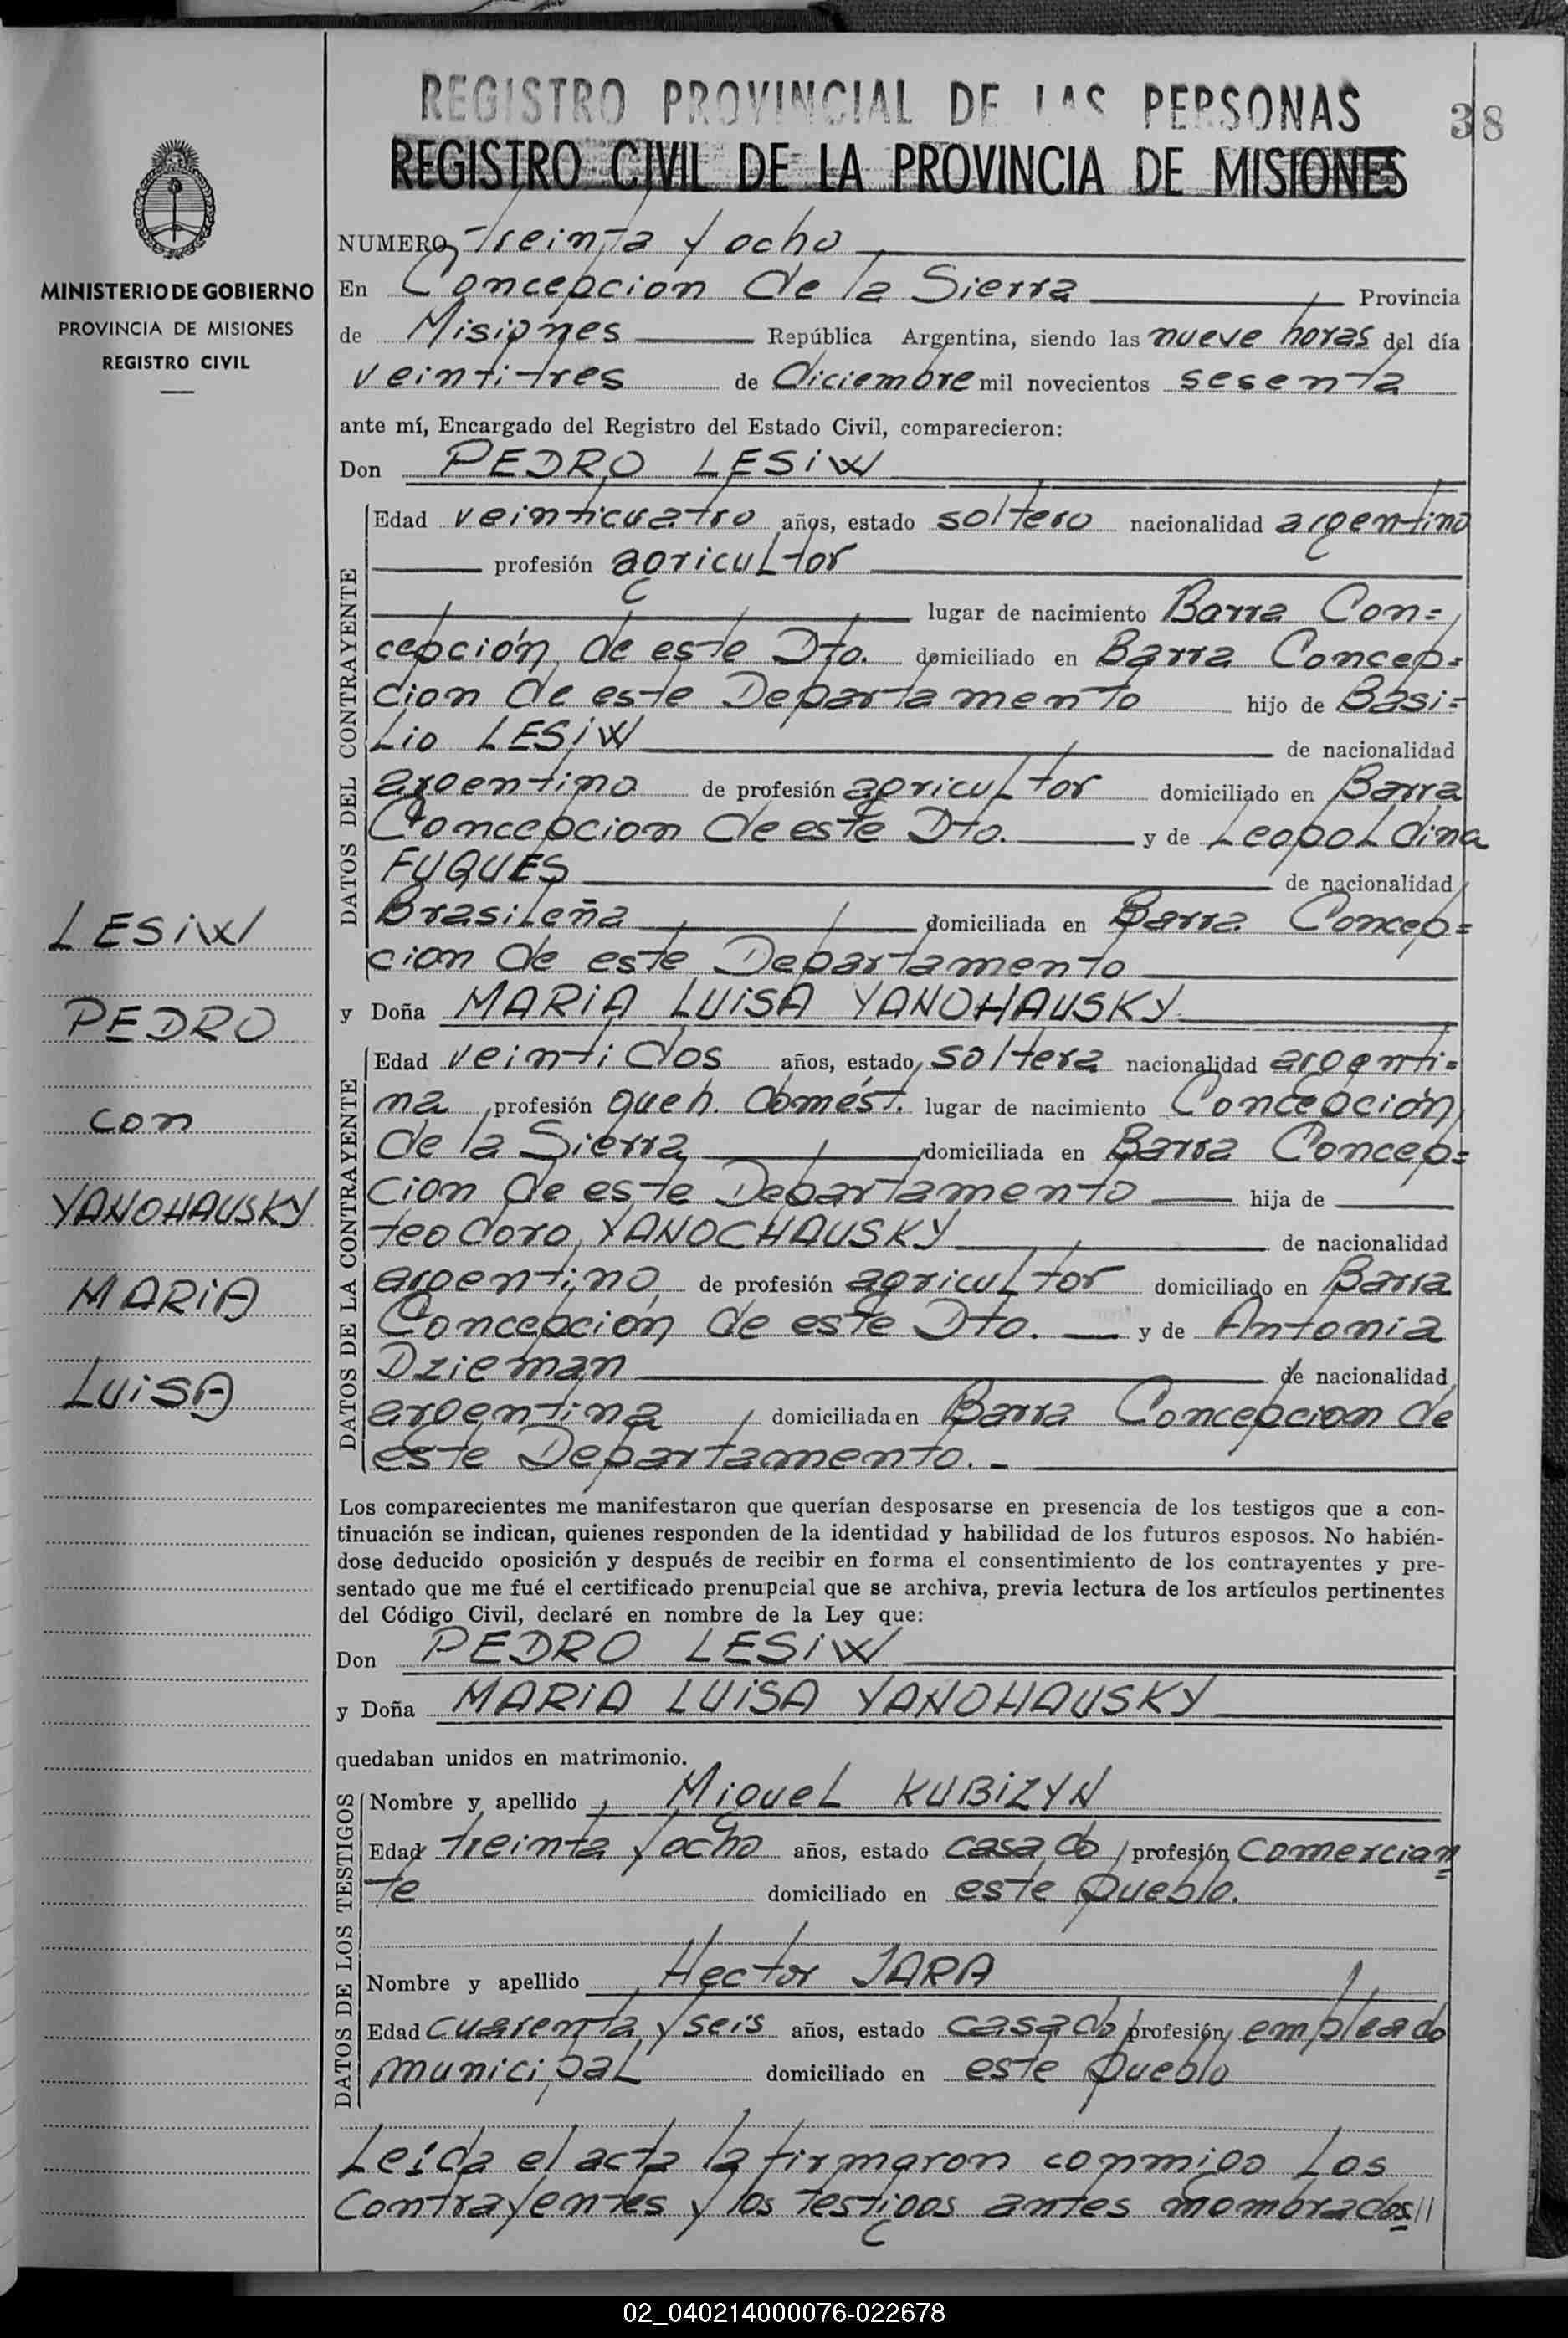 REGISTRO PROVINCIAL DE LAS PERSONAS
38
REGISTRO CIVIL DE LA PROVINCIA DE MISIONES
MINISTERIO DE GOBIERNO
PROVINCIA DE MISIONES
REGISTRO CIVIL
NUMERO Treinta y ocho
En Concepcion de la Sierra Provincia
de Misiones República Argentina, siendo las nueve horas del día
veintitres de diciembre mil novecientos sesenta
ante mí, Encargado del Registro del Estado Civil, comparecieron:
Don PEDRO LESiW
DATOS DEL CONTRAYENTE
Edad veinticuatro años, estado soltero nacionalidad argentino
profesión agricultor
lugar de nacimiento Barra Con=
cepción de este Dto. domiciliado en Barra Concep=
cion de este Departamento hijo de Basi=
Lio LESiW de nacionalidad
argentino de profesión agricultor domiciliado en Barra
Concepcion de este Dto. y de Leopoldina
FUQUES de nacionalidad
Brasileña domiciliada en Barra Concep=
cion de este Departamento
y Doña MARiA LUiSA YANOHAUSKY
DATOS DE LA CONTRAYENTE
Edad veintidos años, estado soltera nacionalidad argenti=
na profesión queh. domést. lugar de nacimiento Concepción
de la Sierra domiciliada en Barra Concep=
cion de este Departamento hija de
teodoro YANOCHAUSKY de nacionalidad
argentino de profesión agricultor domiciliado en Barra
Concepción de este Dto. y de Antonia
Dzieman de nacionalidad
argentina domiciliada en Barra Concepcion de
este Departamento.-
Los comparecientes me manifestaron que querían desposarse en presencia de los testigos que a con-
tinuación se indican, quienes responden de la identidad y habilidad de los futuros esposos. No habién-
dose deducido oposición y después de recibir en forma el consentimiento de los contrayentes y pre-
sentado que me fué el certificado prenupcial que se archiva, previa lectura de los artículos pertinentes
del Código Civil, declaré en nombre de la Ley que:
Don PEDRO LESiW
y Doña MARiA LUiSA YANOHAUSKY
quedaban unidos en matrimonio.
DATOS DE LOS TESTIGOS
Nombre y apellido Miguel KUBiZYN
Edad treinta y ocho años, estado casado profesión comercian
te domiciliado en este pueblo.
Nombre y apellido Hector JARA
Edad cuarenta y seis años, estado casado profesión empleado
municipal domiciliado en este pueblo
Leida el acta la firmaron conmigo los
contrayentes y los testigos antes nombrados//
LESiW
PEDRO
con
YANOHAUSKY
MARiA
LUiSA
02_040214000076-022678